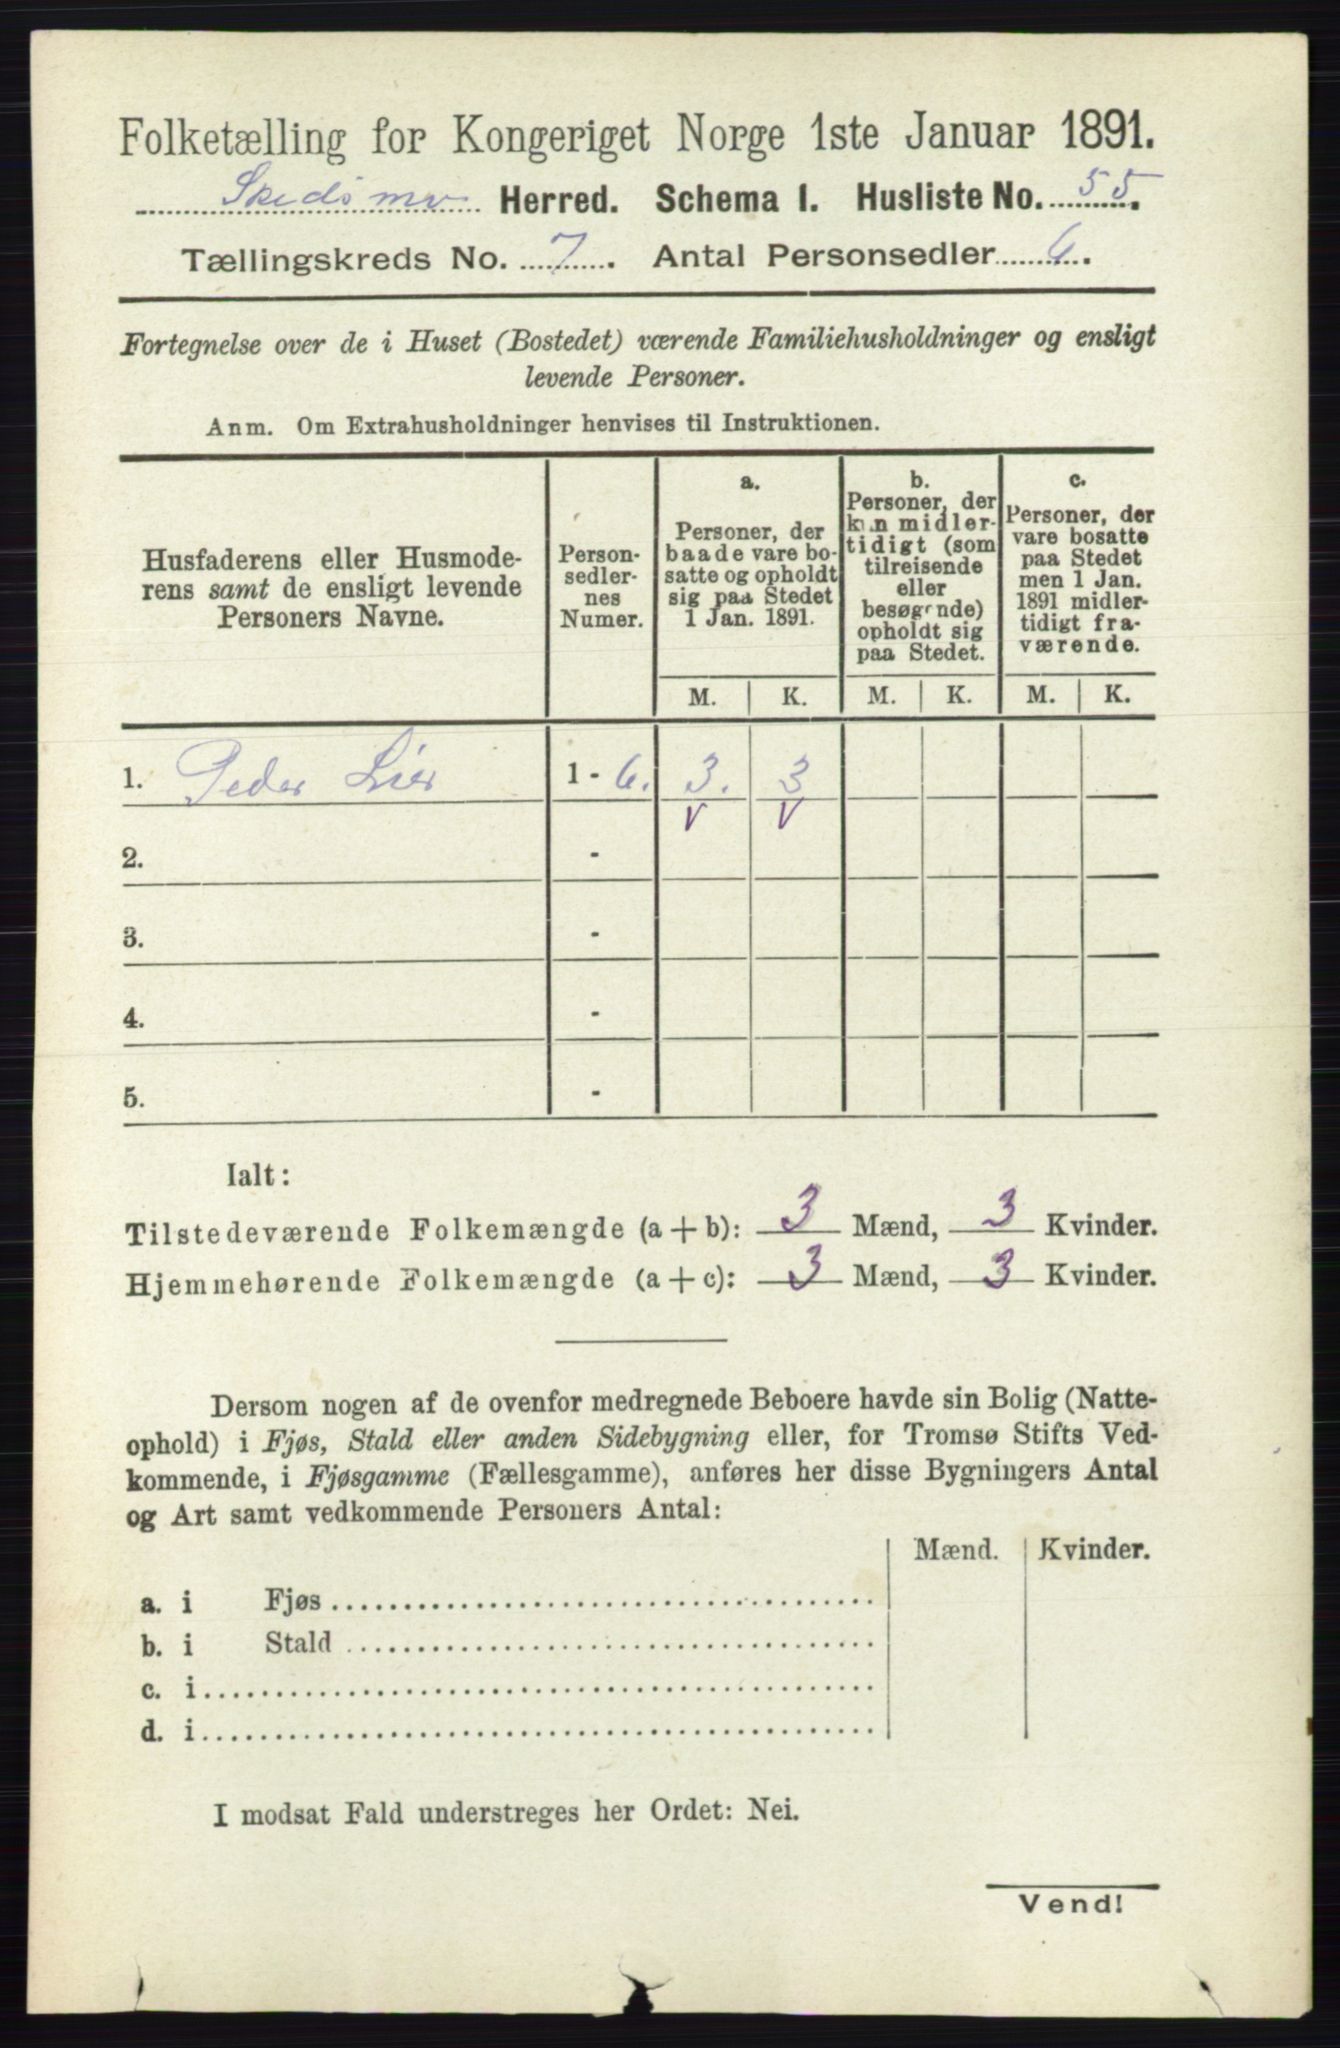 Folketælling for Kongeriget Norge 1ste Januar 1891.
Skedsmo Herred. Schema I. Husliste No. 55.
Tællingskreds No. 7. Antal Personsedler 6.
Fortegnelse over de i Huset (Bostedet) værende Familiehusholdninger og ensligt
levende Personer.
Anm. Om Extrahusholdninger henvises til Instruktionen.
Husfaderens eller Husmode-
rens samt de ensligt levende
Personers Navne.
Person-
sedler-
nes
Numer.
a.
Personer, der
baade vare bo-
satte og opholdt
sig paa Stedet
1 Jan. 1891.
b.
Personer, der
kun midler-
tidigt (som
tilreisende
eller
besøgende)
opholdt sig
paa Stedet.
c.
Personer, der
vare bosatte
paa Stedet
men 1 Jan.
1891 midler-
tidigt fra-
værende.
M. K. M. K. M. K.
1. Peder Lier 1 - 6. 3. 3
V V
2. -
3. -
4. -
5. -
Ialt:
Tilstedeværende Folkemængde (a + b): 3 Mænd, 3 Kvinder.
Hjemmehørende Folkemængde (a + c): 3 Mænd, 3 Kvinder.
Dersom nogen af de ovenfor medregnede Beboere havde sin Bolig (Natte-
ophold) i Fjøs, Stald eller anden Sidebygning eller, for Tromsø Stifts Ved-
kommende, i Fjøsgamme (Fællesgamme), anføres her disse Bygningers Antal
og Art samt vedkommende Personers Antal:
Mænd. Kvinder.
a. i Fjøs
b. i Stald
c. i
d. i
I modsat Fald understreges her Ordet: Nei.
Vend!